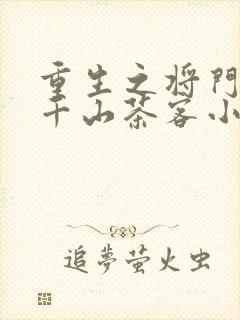 重生之将门
千山茶客小
追夢萤火虫